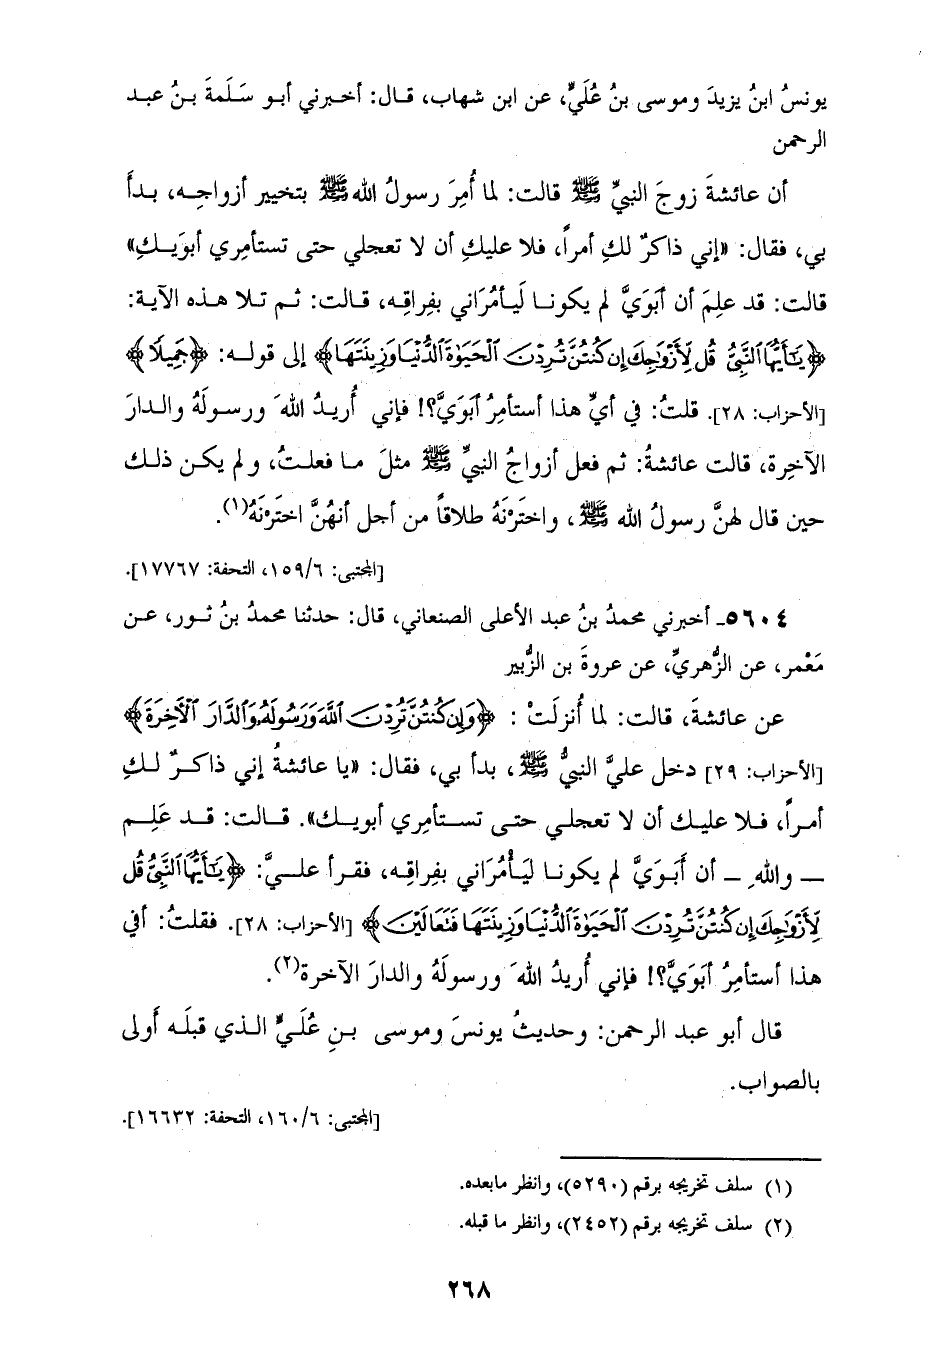 يونسُ ابنُ يزيدَ وموسى بنُ عُلَيٍّ، عن ابن شهاب، قال: أخبرني أبو سَلَمةَ بنُ عبد
الرحمن
أن عائشةَ زوجَ النبيِّ ﷺ قالت: لما أُمِرَ رسولُ الله ﷺ بتخيير أزواجِه، بدأَ
بي، فقال: «إني ذاكرٌ لكِ أمراً، فلا عليكِ أن لا تعجلي حتى تستأمِري أبوَيكِ»
قالت: قد علِمَ أن أبَوَيَّ لم يكونا لَيأمُرَاني بفِراقِه، قالت: ثم تلا هذه الآية:
﴿يَٰٓأَيُّهَا ٱلنَّبِىُّ قُل لِّأَزْوَٰجِكَ إِن كُنتُنَّ تُرِدْنَ ٱلْحَيَوٰةَ ٱلدُّنْيَا وَزِينَتَهَا﴾ إلى قوله: ﴿جَمِيلًا﴾
[الأحزاب: ٢٨]. قلتُ: في أيِّ هذا أستأمِرُ أبَوَيَّ؟! فإني أُريدُ اللهَ ورسولَهُ والدارَ
الآخِرة، قالت عائشةُ: ثم فعل أزواجُ النبيِّ ﷺ مثلَ ما فعلتُ، ولم يكن ذلك
حين قال لهنَّ رسولُ الله ﷺ، واختَرْنَهُ طلاقاً من أجل أنهُنَّ اختَرْنَهُ(١).
[المجتبى: ١٥٩/٦، التحفة: ١٧٧٦٧].
٥٦٠٤ـ أخبرني محمدُ بنُ عبد الأعلى الصنعاني، قال: حدثنا محمدُ بنُ ثور، عن
مَعْمر، عن الزُّهريِّ، عن عروةَ بن الزُّبير
عن عائشةَ، قالت: لما أُنزلَتْ: ﴿وَإِن كُنتُنَّ تُرِدْنَ ٱللَّهَ وَرَسُولَهُۥ وَٱلدَّارَ ٱلْءَاخِرَةَ﴾
[الأحزاب: ٢٩] دخل عليَّ النبيُّ ﷺ، بدأ بي، فقال: «يا عائشةُ إني ذاكرٌ لكِ
أمراً، فلا عليك أن لا تعجلي حتى تستأمِري أبويك». قالت: قد عَلِم
ـ واللهِ ـ أن أبَوَيَّ لم يكونا لَيَأْمُرَاني بفِراقِه، فقرأ عليَّ: ﴿يَٰٓأَيُّهَا ٱلنَّبِىُّ قُل
لِّأَزْوَٰجِكَ إِن كُنتُنَّ تُرِدْنَ ٱلْحَيَوٰةَ ٱلدُّنْيَا وَزِينَتَهَا فَتَعَالَيْنَ﴾ [الأحزاب: ٢٨]. فقلتُ: أفي
هذا أستأمِرُ أبَوَيَّ؟! فإني أُريدُ اللهَ ورسولَهُ والدارَ الآخرة(٢).
قال أبو عبد الرحمن: وحديثُ يونسَ وموسى بنِ عُلَيٍّ الذي قبلَه أَولى
بالصواب.
[المجتبى: ١٦٠/٦، التحفة: ١٦٦٣٢].
(١) سلف تخريجه برقم (٥٢٩٠)، وانظر مابعده.
(٢) سلف تخريجه برقم (٢٤٥٢)، وانظر ما قبله.
٢٦٨